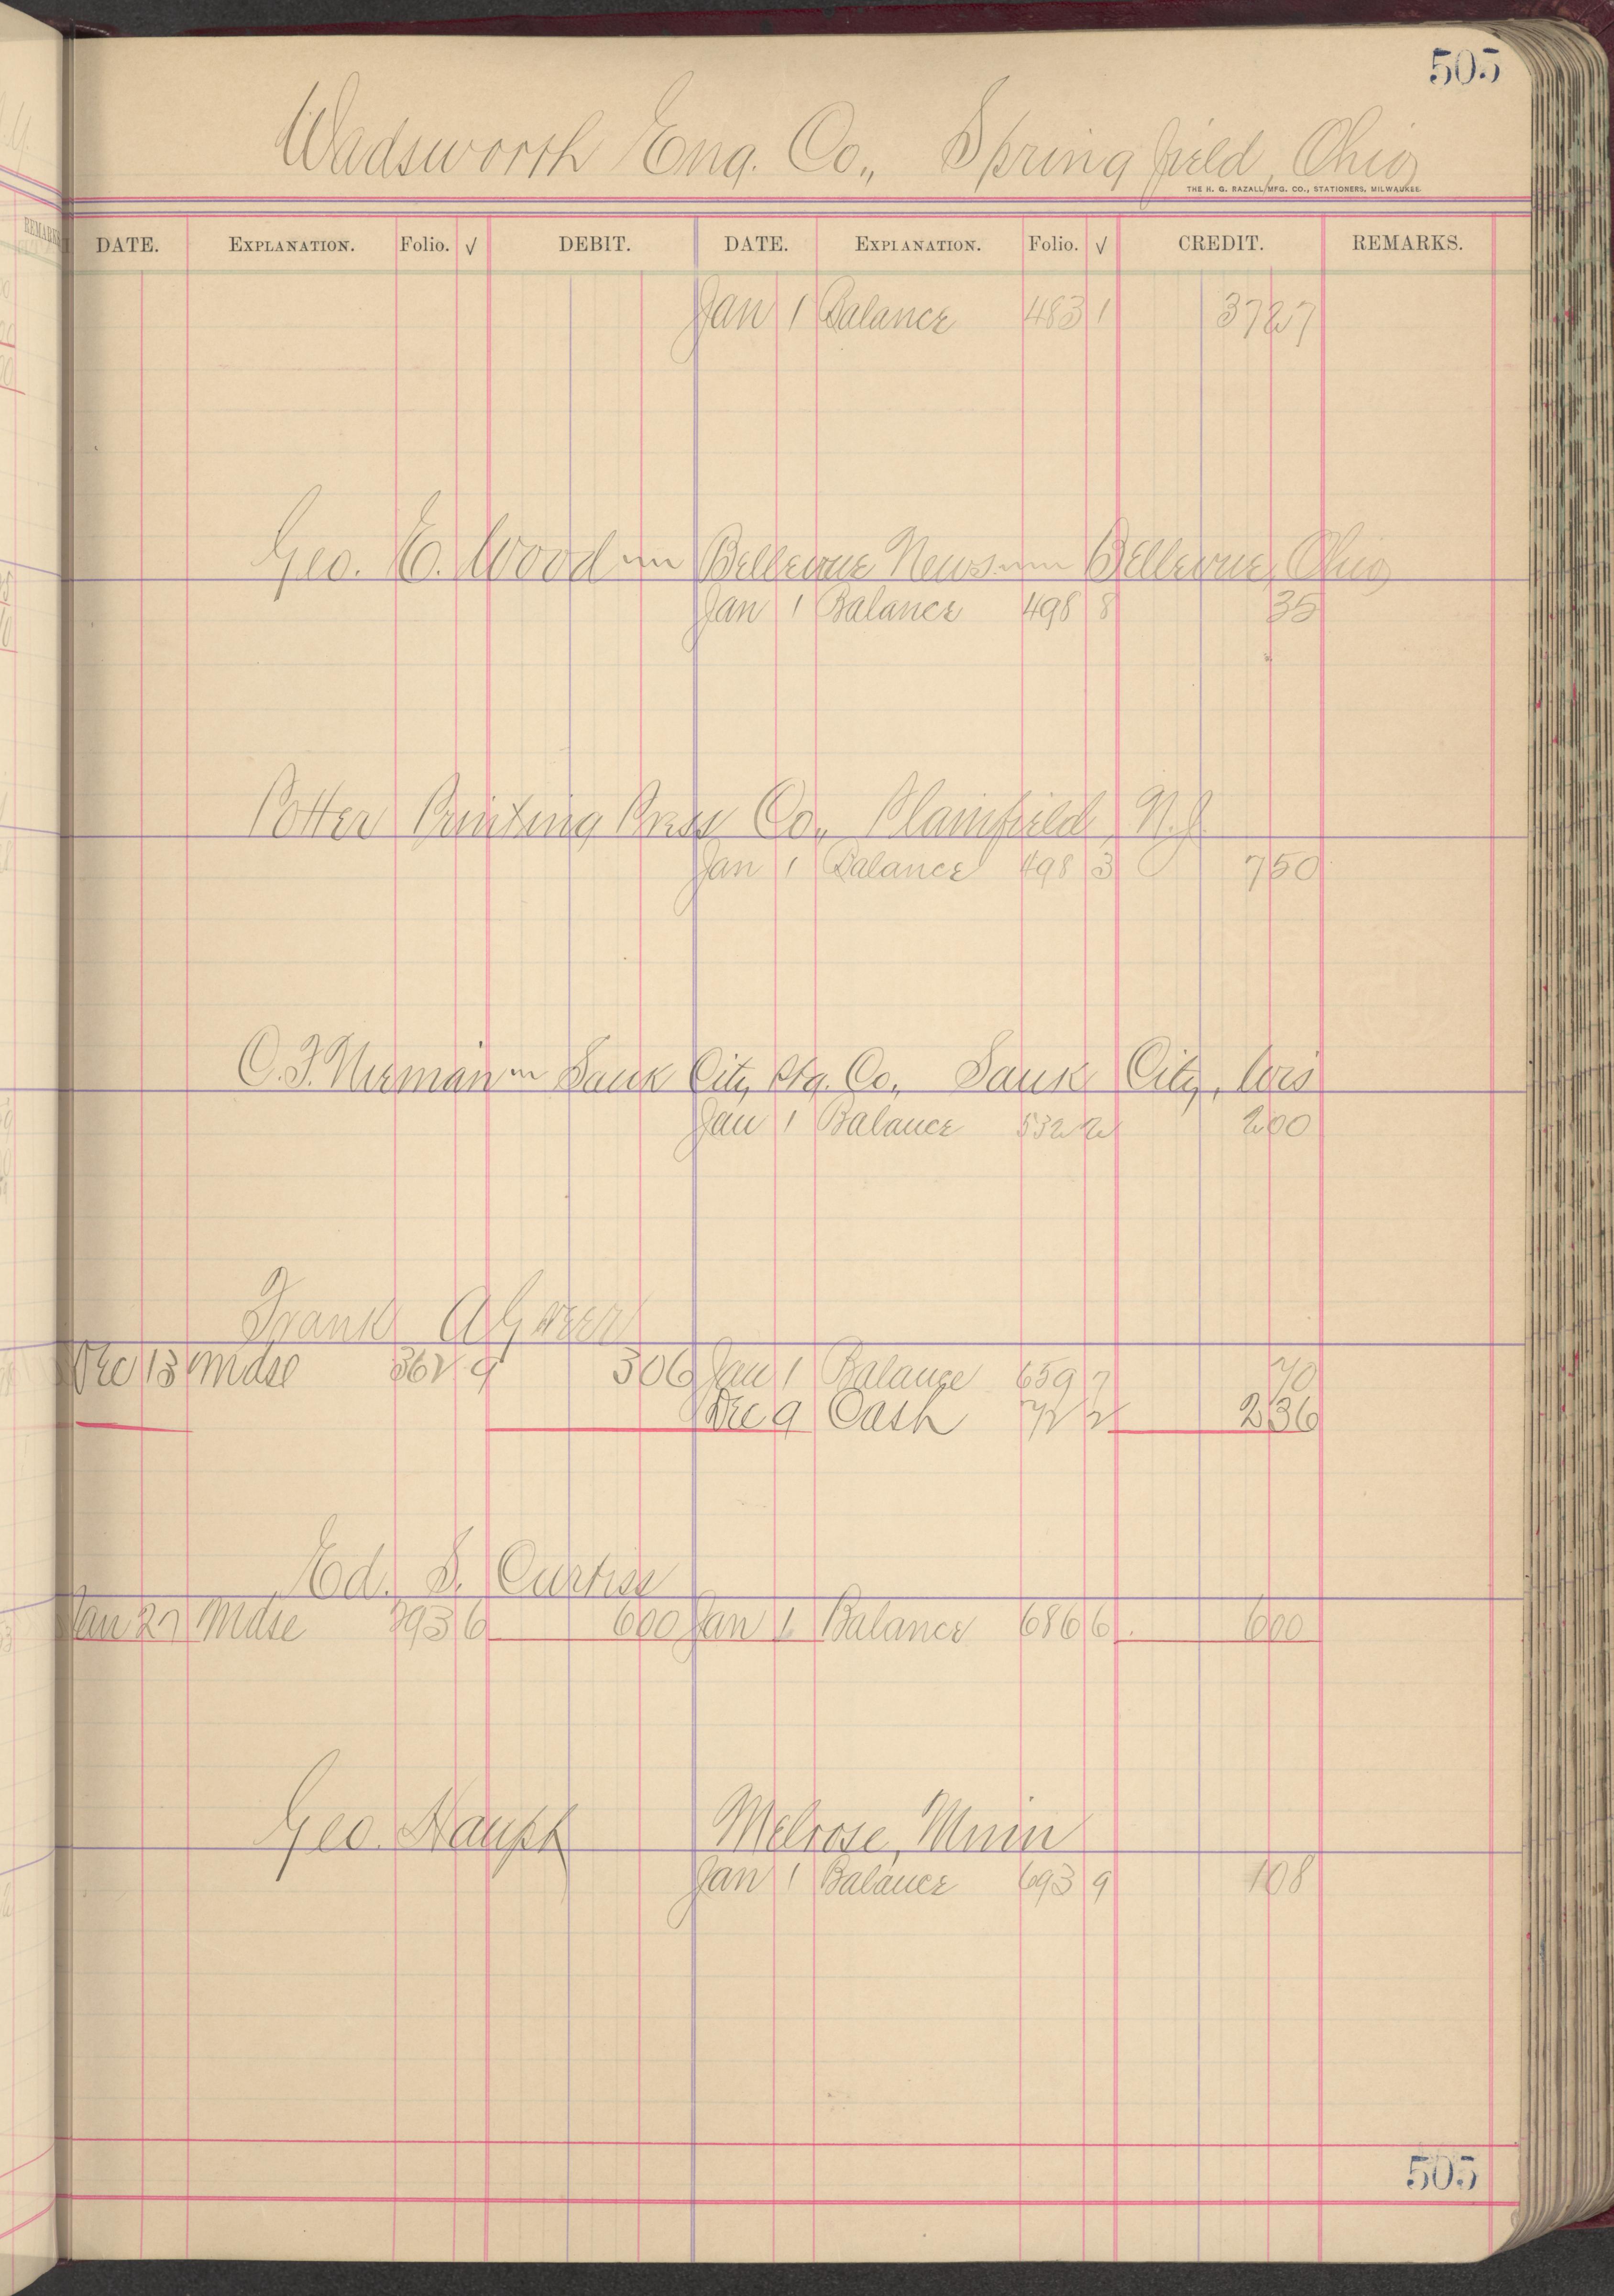 505
Wadsworth Eng. Co., Springfield, Ohio
THE H. G. RAZALL MFG. CO., STATIONERS, MILWAUKEE.
DATE. EXPLANATION. Folio. √ DEBIT. DATE. EXPLANATION. Folio. √ CREDIT. REMARKS.
Jan 1 Balance 483 1 37 27
Geo. E. Wood Bellevue News Bellevue, Ohio
Jan 1 Balance 498 8 35
Potter Printing Press Co., Plainfield, N.J.
Jan 1 Balance 498 3 7 50
Sauk City Ptg. Co., Sauk City, Wis
Jan 1 Balance 532 2 2 00
Frank A Greer
Dec 13 Mdse 362 9 3 06 Jan 1 Balance 659 7 70
Dec 9 Cash 72 2 2 36
Ed. S. Curtiss
Jan 27 Mdse 793 6 6 00 Jan 1 Balance 686 6 6 00
Geo. Haupt Melrose, Minn
Jan 1 Balance 693 9 1 08
505